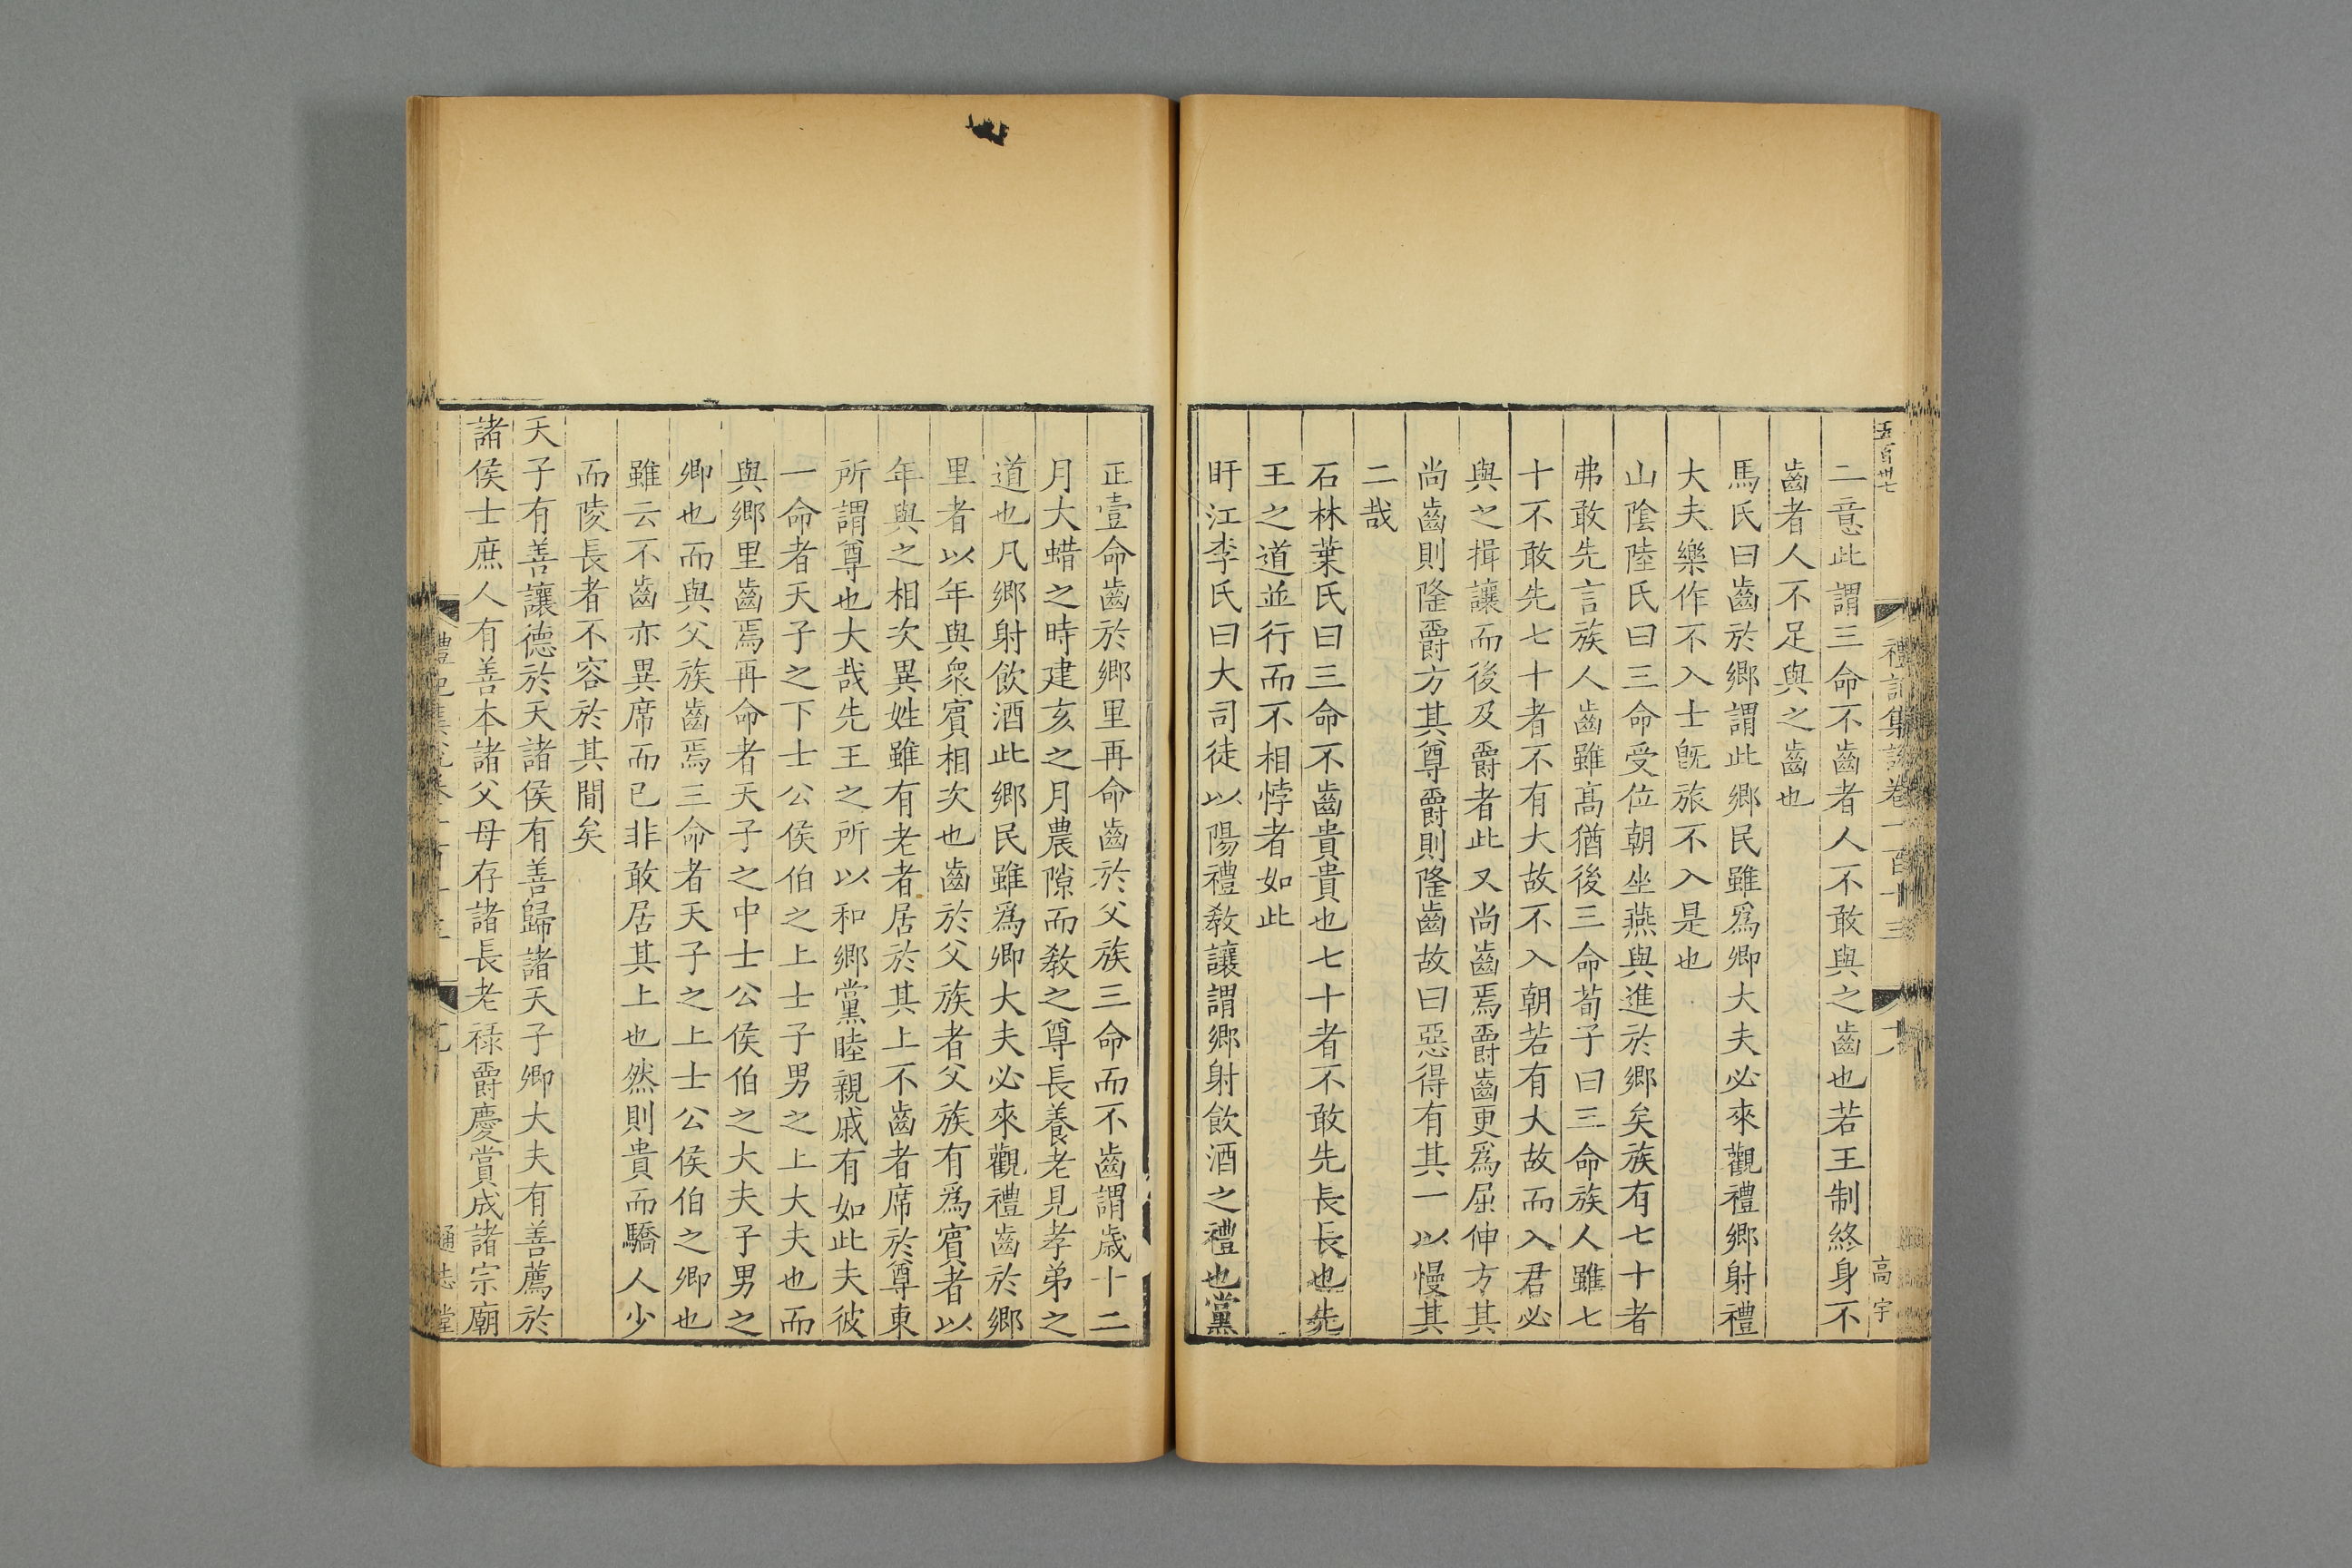 五百卅七
禮記集說卷一百十三
高宇
二意此謂三命不齒者人不敢與之齒也若王制終身不
齒者人不足與之齒也
馬氏曰齒於鄉謂此鄉民雖爲卿大夫必來觀禮鄉射禮
大夫樂作不入士旣旅不入是也
山隂陸氏曰三命受位朝坐燕與進於鄉矣族有七十者
弗敢先言族人齒雖髙猶後三命荀子曰三命族人雖七
十不敢先七十者不有大故不入朝若有大故而入君必
與之揖讓而後及爵者此又尚齒焉爵齒更爲屈伸方其
尚齒則隆爵方其尊爵則隆齒故曰惡得有其一以慢其
二哉
石林葉氏曰三命不齒貴貴也七十者不敢先長長也先
王之道並行而不相悖者如此
盱江李氏曰大司徒以陽禮敎讓謂鄉射飲酒之禮也黨
正壹命齒於鄉里再命齒於父族三命而不齒謂歲十二
月大蜡之時建亥之月農隙而敎之尊長養老見孝弟之
道也凡鄉射飲酒此鄉民雖爲卿大夫必來觀禮齒於鄉
里者以年與衆賓相次也齒於父族者父族有爲賓者以
年與之相次異姓雖有老者居於其上不齒者席於尊東
所謂尊也大哉先王之所以和鄉黨睦親戚有如此夫彼
一命者天子之下士公侯伯之上士子男之上大夫也而
與鄉里齒焉再命者天子之中士公侯伯之大夫子男之
卿也而與父族齒焉三命者天子之上士公侯伯之卿也
雖云不齒亦異席而已非敢居其上也然則貴而驕人少
而陵長者不容於其間矣
天子有善讓德於天諸侯有善歸諸天子卿大夫有善薦於
諸侯士庶人有善本諸父母存諸長老祿爵慶賞成諸宗廟
通志堂